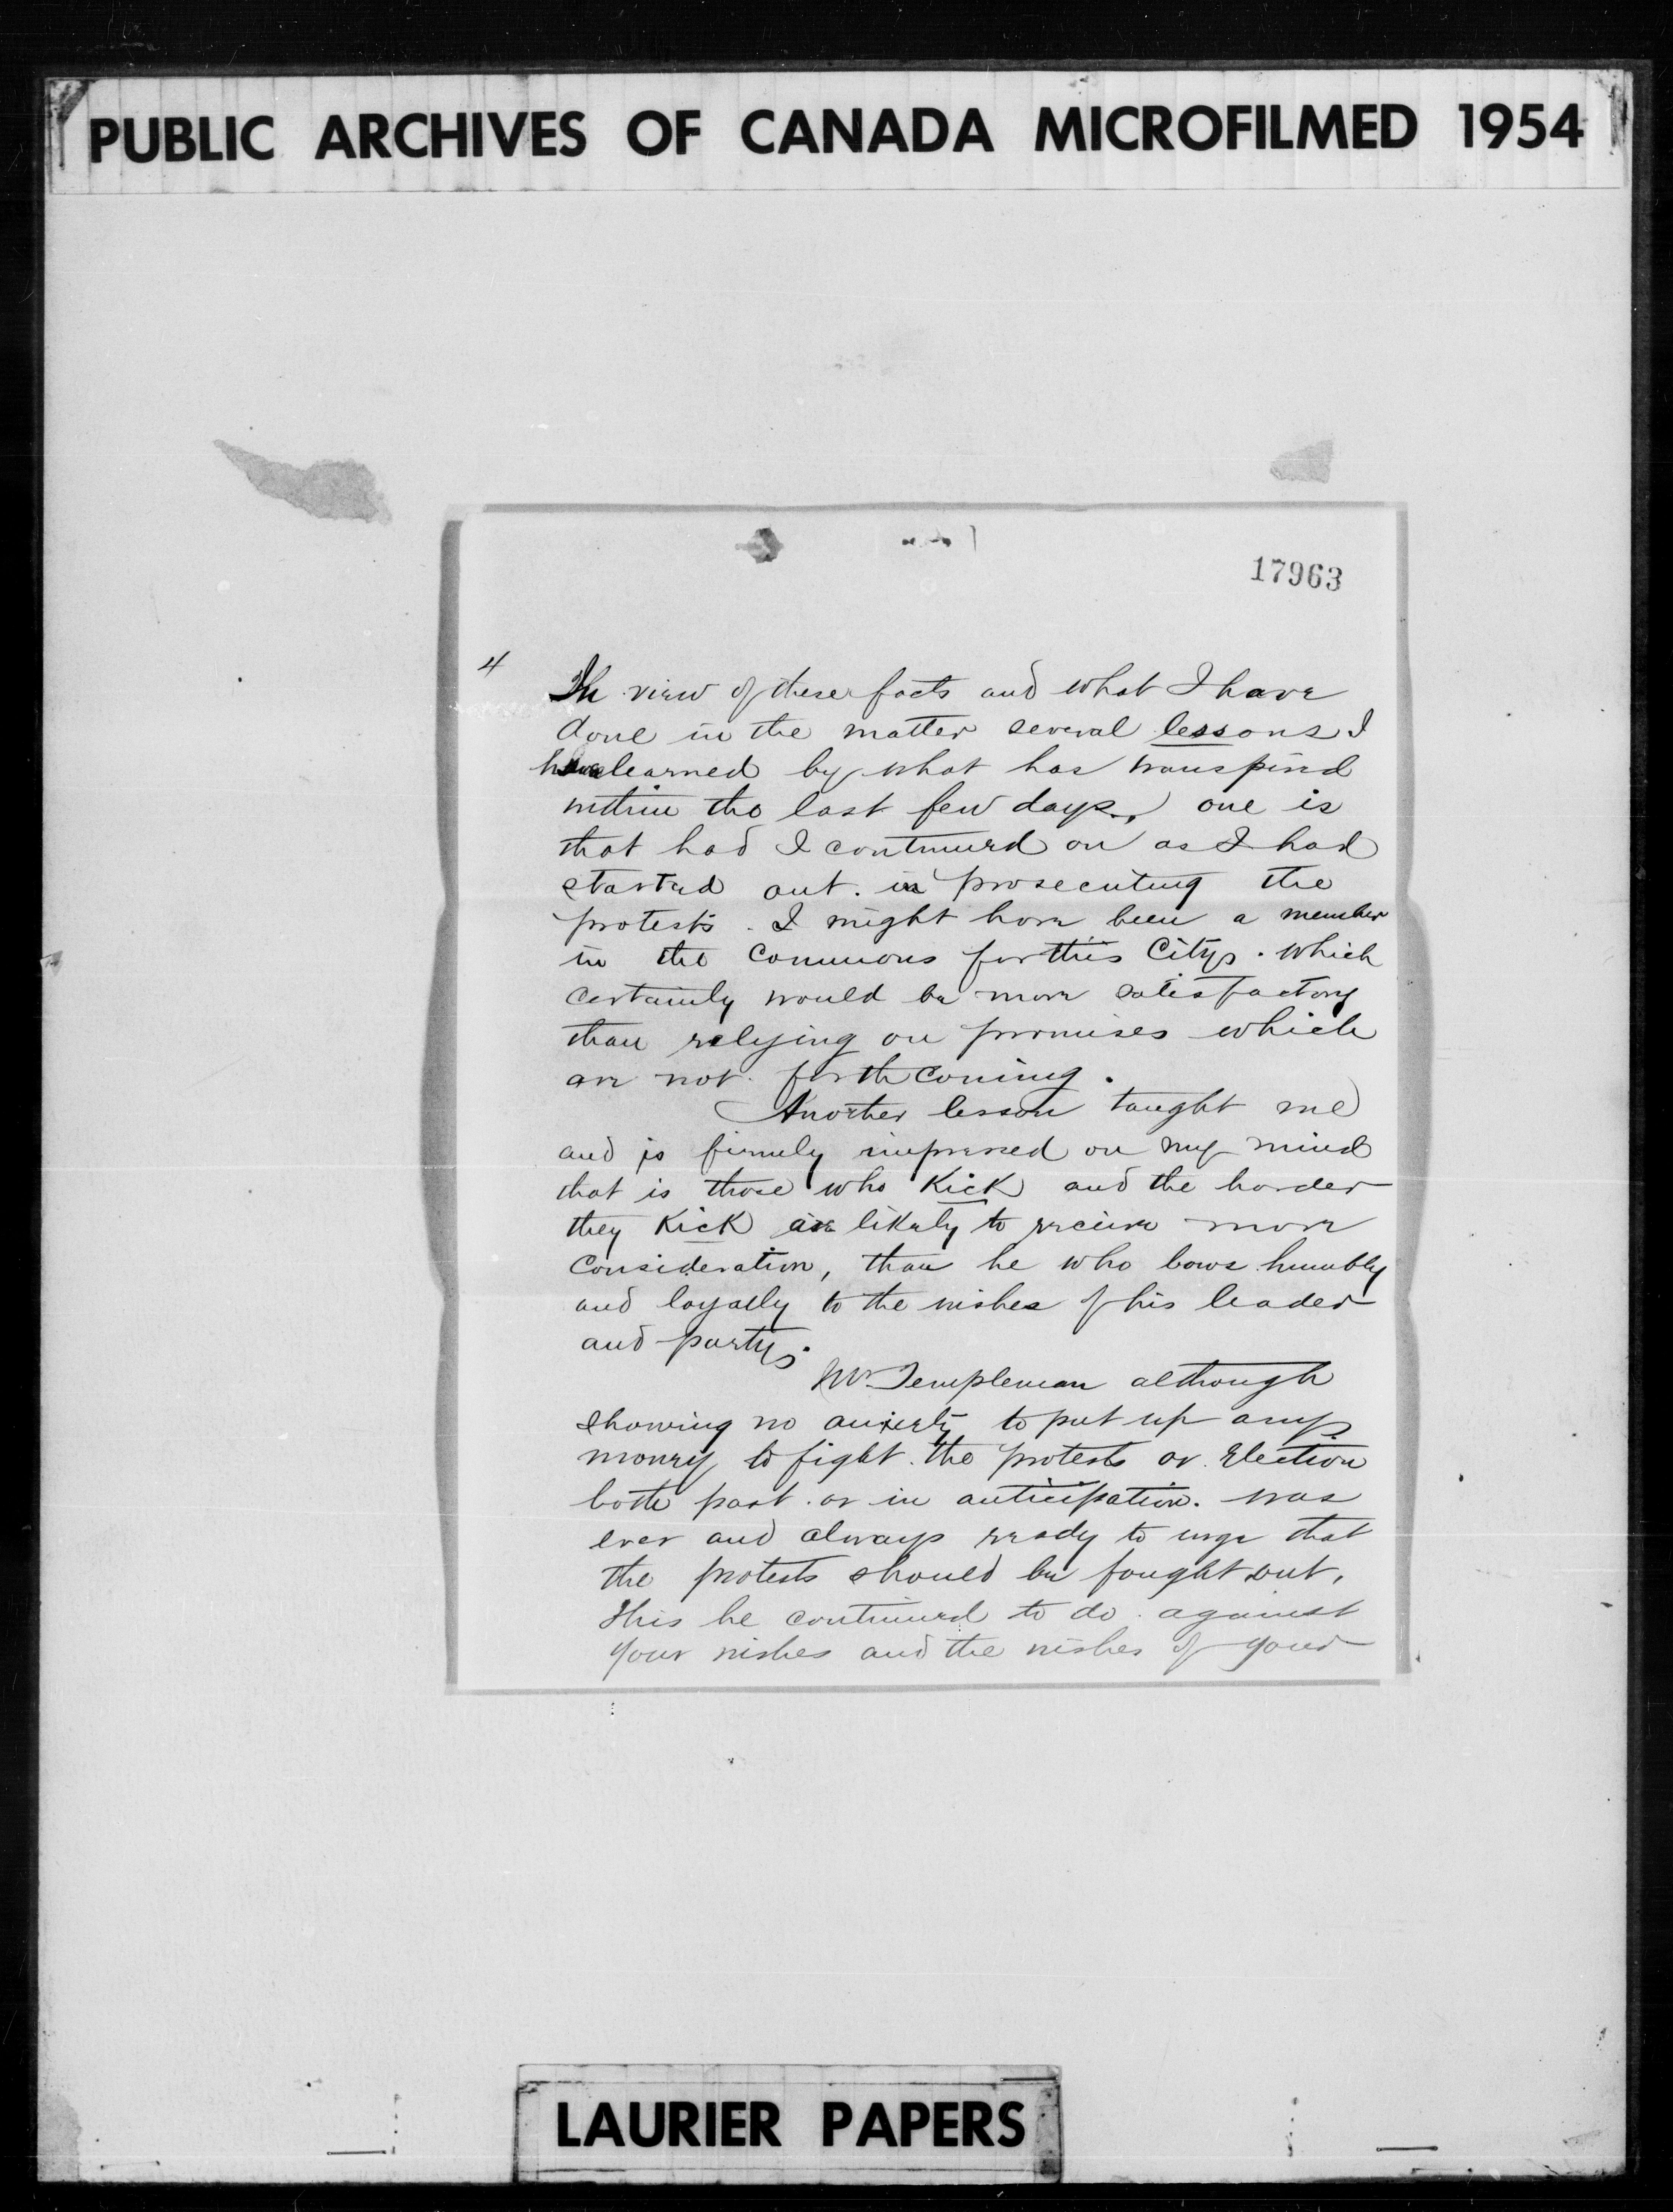 PUBLIC ARCHIVES OF CANADA MICROFILMED 1954
17963
4
In view of these facts and what I have
done in the matter several lessons I
have learned by what has transpired
within the last few days, one is
that had I continued on as I had
started out. in prosecuting the
protests. I might have been a member
in the Commons for this City. which
certainly would be more satisfactory
than relying on promises which
are not forthcoming.
Another lesson taught me
and is firmly impressed on my mind
that is those who Kick and the harder
they Kick are likely to receive more
consideration, than he who bows humbly
and loyally to the wishes of his leader
and party.
Mr Templeman although
showing no anxiety to put up any
money to fight the protests or Election
both past or in anticipation. was
ever and always ready to urge that
the protests should be fought out,
this he continued to do against
your wishes and the wishes of your
LAURIER PAPERS